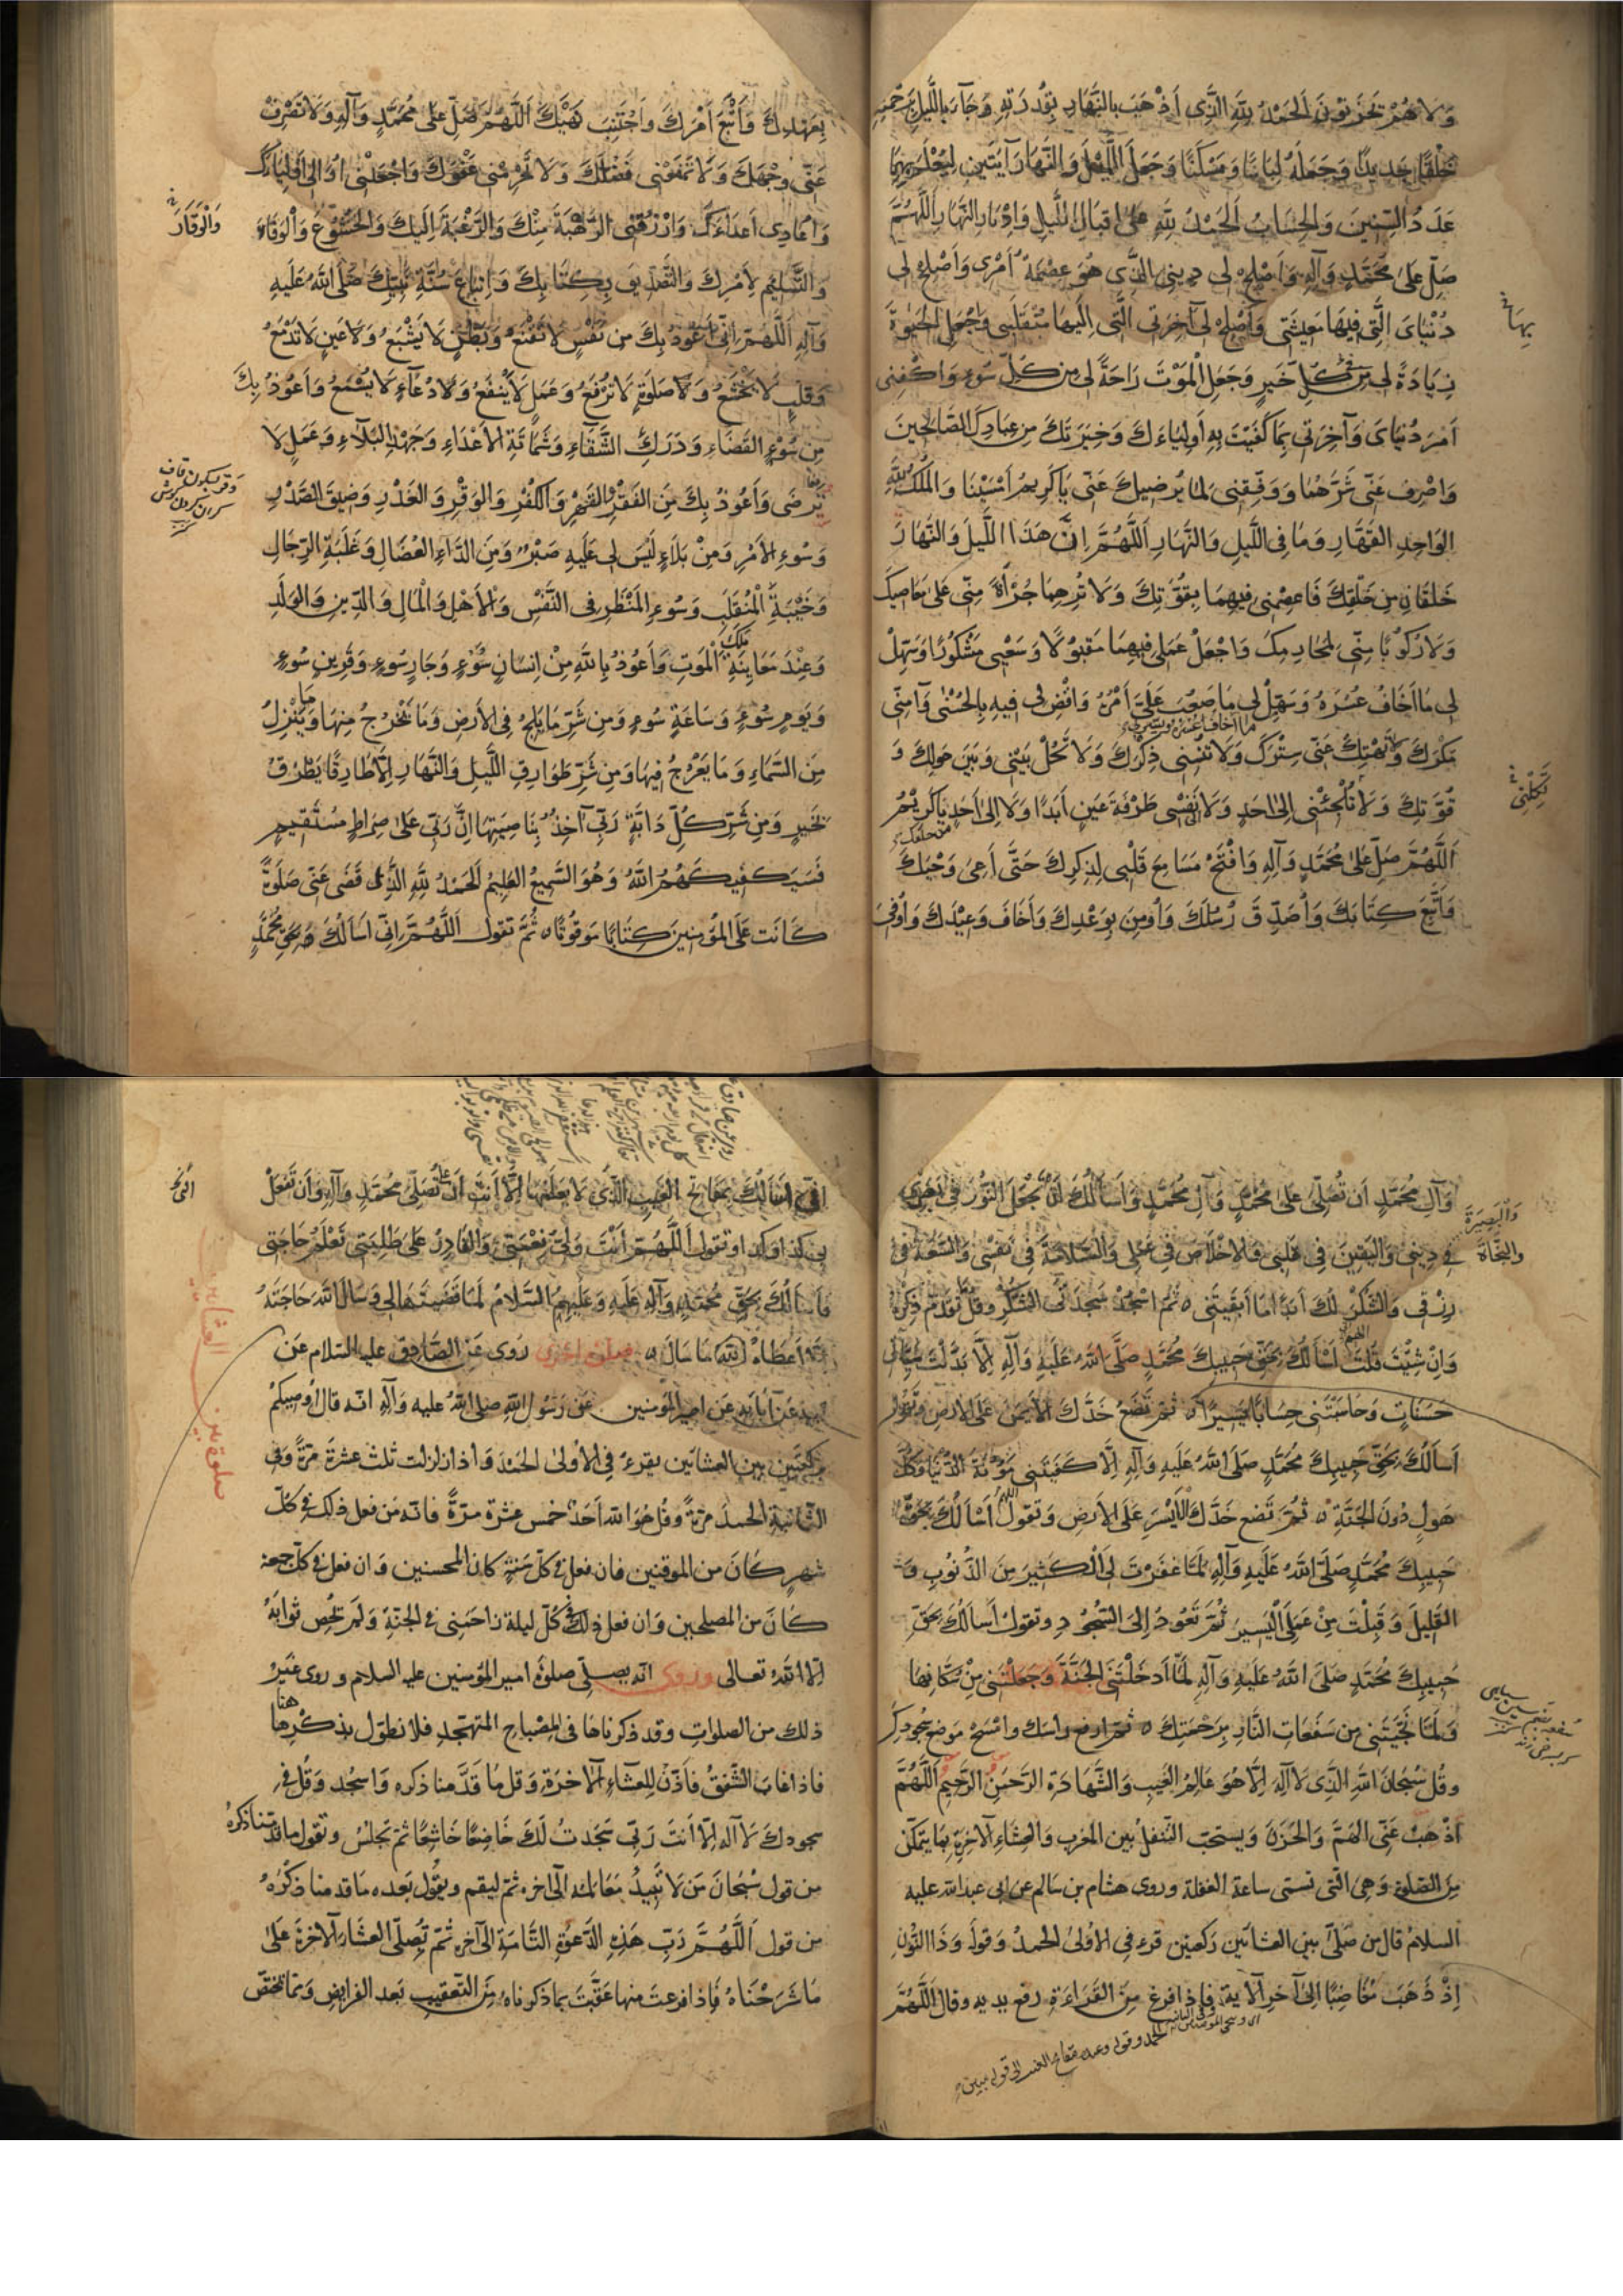 وَلَا هُمْ يَحْزَنُونَ اَلْحَمْدُ لِلّٰهِ الَّذِى اَذْهَبَ بِالنَّهَارِ بِقُدْرَتِهِ وَجَآءَ بِاللَّيلِ بِرَحْمَتِهِ
خَلْقًا جَدِيدًا وَجَعَلَهُ لِبَاسًا وَمَسْكَنًا وَجَعَلَ اللَّيْلَ وَالنَّهَارَ آيَتَينِ لِيُعْلَمَ بِهِمَا
عَدَدُ السِّنِينَ وَالحِسَابُ اَلحَمْدُ لِلّٰهِ عَلىٰ اِقبَالِ اللَّيلِ وَاِدْبَارِ النَّهَارِ اَللّٰهُمَّ
صَلِّ عَلىٰ مُحَمَّدٍ وَآلِهِ وَاَصْلِحْ لى دِينِى الَّذِى هُوَ عِصْمَةُ اَمْرِى وَاَصْلِحْ لى
دُنْيَاىَ الَّتِى فِيهَا مَعِيشَتِى وَاَصْلِحْ لى آخِرَتِى الَّتِى اِلَيهَا مُنْقَلَبِى وَاجْعَلِ الحَيوٰةَ
زِيَادَةً لى مِن كُلِّ خَيرٍ وَجَعَلِ الْمَوْتَ رَاحَةً لى مِن كُلِّ سُوءٍ وَاكْفِنِى
اَمْرَ دُنْيَاىَ وَآخِرَتِى بِمَا كَفَيْتَ بِهِ اَولِيَاءَكَ وَخِيَرَتَكَ مِن عِبَادِكَ الصَّالِحِينَ
وَاصْرِف عَنِّى شَرَّهُمَا وَوَفِّقنِى لِمَا يُرضِيكَ عَنِّى يَاكَرِيمُ اَمْسَيْنَا وَالْمُلكُ لِلّٰهِ
الوَاحِدِ القَهَّارِ وَمَا فِى اللَّيلِ وَالنَّهَارِ اَللّٰهُمَّ اِنَّ هٰذَا اللَّيلَ وَالنَّهَارَ
خَلقَانِ مِن خَلْقِكَ فَاعصِمْنِى فِيهِمَا بِقُوَّتِكَ وَلَا تُرِهِمَا جُرْأَةً مِنِّى عَلىٰ مَعَاصِيكَ
وَلَا رُكُوبًا مِنِّى لِمَحَارِمِكَ وَاجْعَلْ عَمَلِى فِيهِمَا مَقبُولًا وَسَعْيِى مَشْكُورًا وَسَهِّلْ
لى مَا اَخَافُ عُسْرَهُ وَسَهِّلْ لى مَا صَعُبَ عَلَىَّ اَمْرُهُ وَاقْضِ لى فِيهِ بِالحُسْنىٰ وَآمِنِّى
مَا اخاف عسره ويسر لى
مَكْرَكَ وَلَا تَهْتِكْ عَنِّى سِتْرَكَ وَلَا تُنْسِنِى ذِكْرَكَ وَلَا تَحُلْ بَيْنِى وَبَينَ حَولِكَ وَ
قُوَّتِكَ وَلَا تُلْجِئْنِى اِلىٰ اَحَدٍ وَلَا اِلىٰ نَفْسِى طَرْفَةَ عَينٍ اَبَدًا وَلَا اِلىٰ اَحَدٍ يَاكَرِيْمُ
من خلقك
اَللّٰهُمَّ صَلِّ عَلىٰ مُحَمَّدٍ وَآلِهِ وَافْتَحْ مَسَامِعَ قَلْبِى لِذِكرِكَ حَتَّى اَعِىَ وَحْيَكَ
وَاَتَّبِعَ كِتَابَكَ وَاُصَدِّقَ رُسُلَكَ وَاُومِنَ بِوَعْدِكَ وَاَخَافَ وَعِيْدَكَ وَاُوفِىَ
بِعَهْدِكَ وَاَتَّبِعَ اَمْرَكَ وَاَجْتَنِبَ نَهْيَكَ اَللّٰهُمَّ صَلِّ عَلىٰ مُحَمَّدٍ وَآلِهِ وَلَا تَصْرِفْ
عَنِّى وَجْهَكَ وَلَا تَمْنَعْنِى فَضْلَكَ وَلَا تَحْرِمْنِى عَفْوَكَ وَاجْعَلْنِى اُوَالِى اَوْلِيَاءَكَ
وَاُعَادِى اَعدَاءَكَ وَارْزُقْنِى الرَّهْبَةَ مِنْكَ وَالرَّغْبَةَ اِلَيكَ وَالخُشُوعَ وَالْوَقَاءَ
وَالْوَقَارَ
وَالتَّسْلِيمَ لِاَمْرِكَ وَالتَّصْدِيقَ بِكِتَابِكَ وَاتِّبَاعَ سُنَّةِ نَبِيِّكَ صَلَّى اللّٰهُ عَلَيهِ
وَآلِهِ اَللّٰهُمَّ اِنِّى اَعُوذُ بِكَ مِن نَفْسٍ لَا تَقْنَعُ وَبَطْنٍ لَا يَشْبَعُ وَلَا عَينٍ لَا تَدْمَعُ
وَقَلبٍ لَا يَخْشَعُ وَلَا صَلوٰةٍ لَا تُرفَعُ وَعَمَلٍ لَا يَنفَعُ وَلَا دُعَآءٍ لَا يُسْمَعُ وَاَعُوذُ بِكَ
مِن سُوءِ القَضَاءِ وَدَرَكِ الشَّقَآءِ وَشَمَاتَةِ الاَعْدَاءِ وَجَهْدِ البَلَاءِ وَعَمَلٍ لَا
يُرضَى وَاَعُوذُ بِكَ مِنَ الفَقْرِ وَالقَهْرِ وَالكُفْرِ وَالوَقْرِ وَالغَدْرِ وَضِيقِ الصَّدْرِ
وَسُوءِ الاَمْرِ وَمِنْ بَلَاءٍ لَيْسَ لى عَلَيهِ صَبْرٌ وَمِنَ الدَّاءِ العُضَالِ وَغَلَبَةِ الرِّجَالِ
وَخَيْبَةِ الْمُنْقَلَبِ وَسُوءِ المَنْظَرِ فِى النَّفْسِ وَالْاَهْلِ وَالْمَالِ وَالدِّينِ وَالوَلَدِ
وَعِنْدَ مُعَايَنَةِ مَلَكِ الْمَوتِ وَاَعُوذُ بِاللّٰهِ مِنْ اِنسَانِ سُوْءٍ وَجَارِ سُوءٍ وَقَرِينِ سُوءٍ
وَيَومِ سُوْءٍ وَسَاعَةِ سُوءٍ وَمِن شَرِّ مَا يَلِجُ فِى الاَرضِ وَمَا يَخْرُجُ مِنهَا وَمَا يَنْزِلُ
مِنَ السَّمَاءِ وَمَا يَعْرُجُ فِيهَا وَمِن شَرِّ طَوَارِقِ اللَّيلِ وَالنَّهَارِ اِلَّا طَارِقًا يَطْرُقُ
بِخَيرٍ وَمِن شَرِّ كُلِّ دَابَّةٍ رَبِّى آخِذٌ بِنَاصِيَتِهَا اِنَّ رَبِّى عَلىٰ صِرَاطٍ مُسْتَقِيمٍ
فَسَيَكفِيكَهُمُ اللّٰهُ وَهُوَ السَّمِيعُ العَلِيمُ اَلحَمْدُ لِلّٰهِ الَّذِى قَضَى عَنِّى صَلوٰةً
كَانَت عَلَى المُؤمِنِينَ كِتَابًا مَوقُوتًا ثُمَّ تقول اَللّٰهُمَّ اِنِّى اَسْاَلُكَ بِحَقِّ مُحَمَّدٍ
وَآلِ مُحَمَّدٍ اَن تُصَلِّى عَلىٰ مُحَمَّدٍ وَآلِ مُحَمَّدٍ وَاَسْاَلُكَ اَن تَجْعَلَ النُّوْرَ فِى بَصَرِى
وَالْبَصِيرَةَ
فِى دِينِى وَاليَقِينَ فِى قَلبِى وَالاِخْلَاصَ فِى عَمَلِى وَالسَّلَامَةَ فِى نَفسِى وَالسَّعَةَ فِى
والنَّجَاةَ
رِزْقِى وَالشُّكْرَ لَكَ اَبَدًا مَا اَبقَيتَنِى ثُمَّ اسْجُدْ سَجْدَتَى الشُّكْرِ وقل مَا تَقدَّم ذِكْرُهُ
وَاِنْ شِئْتَ قُلْتَ اَسْاَلُكَ بِحَقِّ حَبِيبِكَ مُحَمَّدٍ صَلَّى اللّٰهُ عَلَيهِ وَآلِهِ اِلَّا بَدَّلْتَ سَيِّئَاتِى
حَسَنَاتٍ وَحَاسَبْتَنِى حِسَابًا يَسِيرًا ثمّ تَضَعُ خَدَّكَ الاَيمَنَ عَلَى الارضِ وَتَقُولُ
اَسْاَلُكَ بِحَقِّ حَبِيبِكَ مُحَمَّدٍ صَلَّى اللّٰهُ عَلَيهِ وَآلِهِ اِلَّا كَفَيتَنِى مَؤُنَةَ الدُّنيَا وَكُلَّ
هَولٍ دُونَ الجَنَّةِ ثُمَّ تَضَع خَدَّكَ الْاَيْسَرَ عَلَى الاَرضِ وَتَقولُ اَسْاَلُكَ بِحَقِّ
حَبِيبِكَ مُحَمَّدٍ صَلَّى اللّٰهُ عَلَيهِ وَآلِهِ لَمَّا غَفَرْتَ لِىَ الْكَثِيرَ مِنَ الذُّنُوبِ وَ
القَلِيلَ وَقَبِلْتَ مِنْ عَمَلِىَ الْيَسِيرَ ثُمَّ تَعُودُ اِلَى السُّجُودِ وتقولُ اَسْاَلُكَ بِحَقِّ
حَبِيبِكَ مُحَمَّدٍ صَلَّى اللّٰهُ عَلَيهِ وَآلِهِ لَمَّا اَدخَلْتَنِى الجَنَّةَ وَجَعَلْتَنِى مِنْ سُكَّانِهَا
وَلَمَّا نَجَّيْتَنِى مِن سَفَعَاتِ النَّارِ بِرَحْمَتِكَ ثمّ ارفع راسَك وامْسَحْ مَوضِع سُجُودِكَ
وقُل سُبْحَانَ اللّٰهِ الَّذِى لَا اِلٰهَ اِلَّا هُوَ عَالِمُ الغَيبِ وَالشَّهَادَةِ الرَّحمٰنِ الرَّحِيمُ اَللّٰهُمَّ
اَذْهِبْ عَنِّى الهَمَّ وَالحَزَنَ وَيستحبّ التّنفّلُ بين المغرب وَالعِشَاءِ الآخِرَةِ بمَا يتمكّن
مِنَ الصّلوة وَهِىَ الّتى تسمّى ساعةَ الغفلة وروى هشام بن سَالم عن ابى عبد اللّه عليه
السلامُ قال من صَلّى بين العشائَين رَكعتين قرءَ فى الاولىٰ الحمدُ وَقولَه وَذَا النُّونِ
اِذْ ذَهَبَ مُغَاضِبًا اِلىٰ آخِرِ الآيةِ فاِذا فرغ مِنَ القَرَاءَةِ رفع يديه وقال اَللّٰهُمَّ
الحمد وقوله وعنده مفاتح الغيب الى قوله مبين
اِنِّى اَسْاَلُكَ بِمَفَاتِحِ الغَيبِ الَّتِى لَا يَعلَمُهَا اِلَّا اَنتَ اَنْ تُصَلِّىَ مُحَمَّدٍ وَآلِهِ وَاَن تَفْعَلَ
بى كذا وكذا وتقول اَللّٰهُمَّ اَنْتَ وَلِىُّ نِعْمَتِى وَالقَادِرُ عَلىٰ طَلِبَتِى تَعْلَمُ حَاجَتِى
فَاَسْاَلُكَ بِحَقِّ مُحَمَّدٍ وَآلِهِ عَلَيهِ وَعَلَيهِمُ السَّلَامُ لَمَّا قَضَيتَهَا لى وَسَاَلَ اللّٰهَ حَاجَتَهُ
اَعطَاهُ اللّٰهُ مَا سَالَ رُوِىَ عَن الصَّادِقِ عليه السّلام عَن
ابيه عَن آبَائِهِ عَن امير المؤمنين عَن رَسُول اللّهِ صلى اللّهُ عليه وَآلِهِ انّه قال اُوصِيكُمْ
بِركعتَين بين العِشائَين يقرءُ فى الاُولىٰ الحَمدَ وَاذا زلزلت ثلث عشرَةَ مَرّةً وَفى
الثّانيةِ الحمدَ مرّةً وقُل هُوَ اللّه اَحَدٌ خمس عشرة مرّةً فانّه مَن فعل ذلك فى كلّ
شهرٍ كَانَ من الموقنين فان فعل فى كلّ سَنةٍ كان المحسنين وَان فعل فى كلّ جمعة
كَانَ من المصلحين وَان فعل ذلك فى كلّ ليلة زاحَمَنِى فى الجنّةِ وَلَم يُحْصِ ثَوابَهُ
اِلّا اللّٰهُ تعالى وروى انّه يصلّى صلوةَ امير المؤمنين عليه السلام وروى غيرُ
ذلك من الصلواتِ وقد ذكرناهَا فى المِصْبَاحِ المتهجّدِ فلا نطوّل بذكرِها هنا
فاذا غابَ الشّفقُ فاَذِّن لِلعِشَاءِ الآخرةِ وَقل مَا قَدَّمنا ذكره وَاسجُد وَقُل فى
سجودكَ لَا اِلٰهَ اِلّا اَنتَ رَبِّى سَجَدتُ لَكَ خَاضِعًا خَاشِعًا ثمّ تجلسُ وتقول ما قدّمنا ذكرُهُ
من قول سُبْحَانَ مَن لَا تَبِيدُ مَعَالمُهُ الى آخره ثمّ ليقم ويقُول بَعده مَا قدمنا ذكرُهُ
من قول اَللّٰهُمَّ رَبّ هٰذِهِ الدَّعوَةِ التَّامَةِ الى آخرِه ثمّ تُصلّى العِشَاءَ الآخرةَ عَلىٰ
مَا شَرَحْنَاهُ فَاِذا فرغتَ منها عَقَّبْتَ بما ذكرناهُ مِنَ التّعقيب بَعد الفرايض وَممّا يختصّ